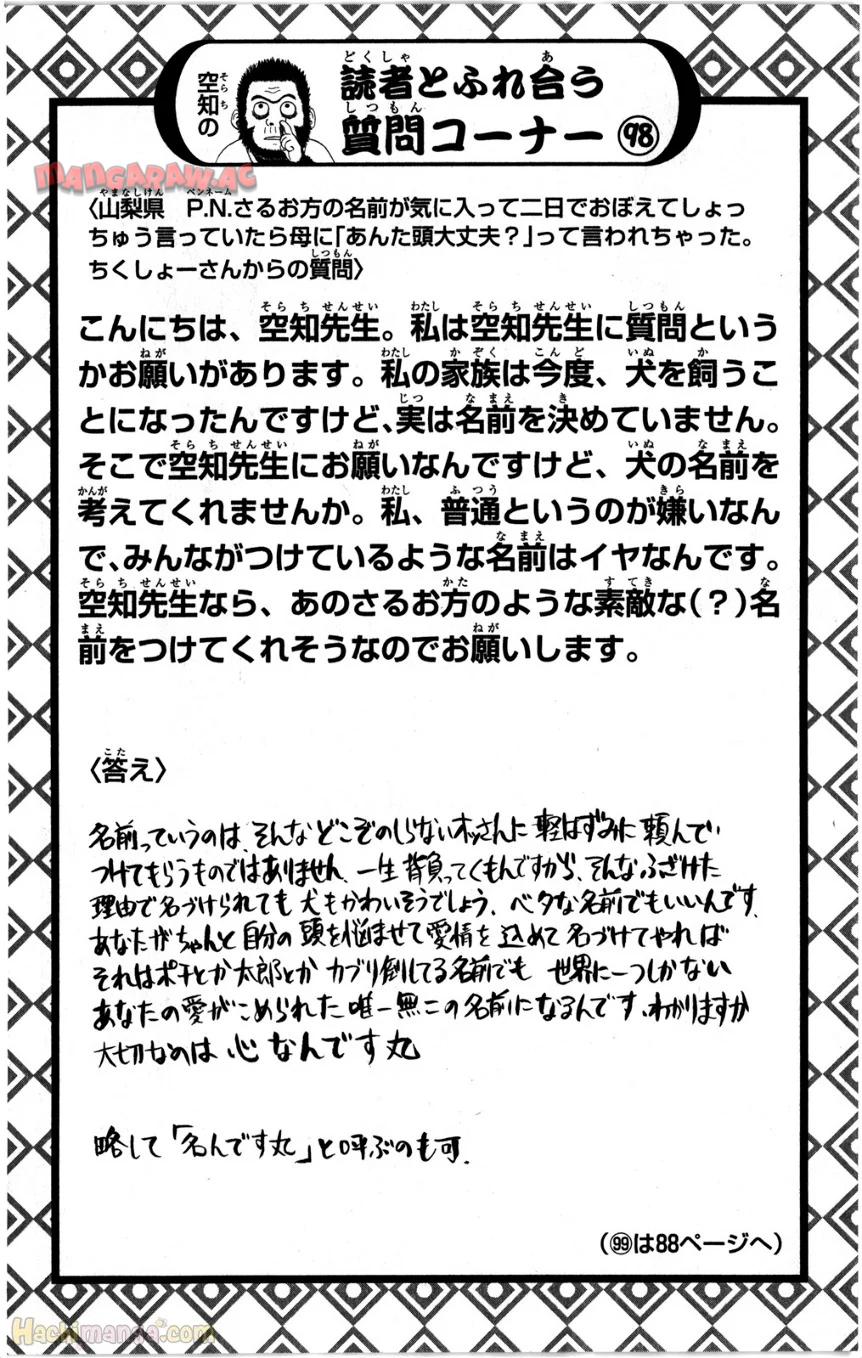 空知の
読者とふれ合う
質問コーナー 98
MANGARAW.AC
〈山梨県 P.N.さるお方の名前が気に入って二日でおぼえてしょっ
ちゅう言っていたら母に「あんた頭大丈夫？」って言われちゃった。
ちくしょーさんからの質問〉
こんにちは、空知先生。私は空知先生に質問という
かお願いがあります。私の家族は今度、犬を飼うこ
とになったんですけど、実は名前を決めていません。
そこで空知先生にお願いなんですけど、犬の名前を
考えてくれませんか。私、普通というのが嫌いなん
で、みんながつけているような名前はイヤなんです。
空知先生なら、あのさるお方のような素敵な(？)名
前をつけてくれそうなのでお願いします。
〈答え〉
名前っていうのは、そんなどこぞのしらないオッさんに軽はずみに頼んで
つけてもらうものではありません、一生背負ってくもんですから、そんなふざけた
理由で名づけられても犬もかわいそうでしょう、ベタな名前でもいいんです、
あなたがちゃんと自分の頭を悩ませて愛情を込めて名づけてやれば
それはポチとか太郎とかカブリ倒してる名前でも 世界に一つしかない
あなたの愛がこめられた唯一無二の名前になるんです、わかりますか
大切なのは 心なんです丸
略して「名んです丸」と呼ぶのも可、
(99は88ページへ)
Hachimanga.com